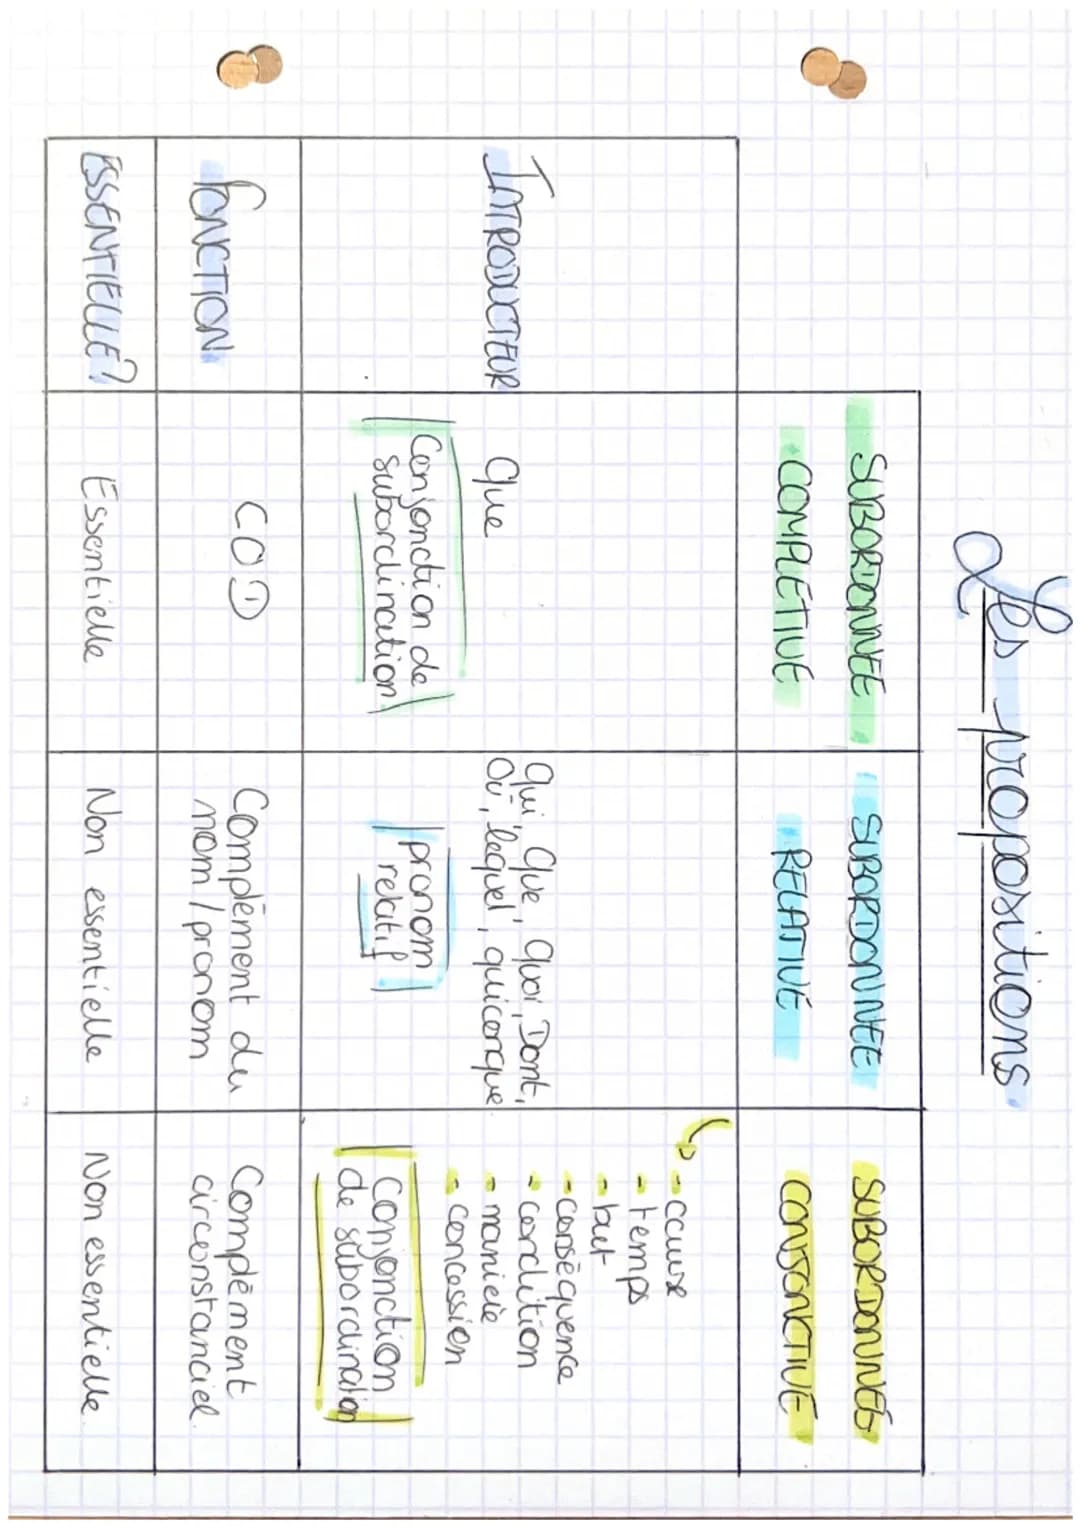 Les propositions
SUBORDONNÉE
COMPLÉTIVE
SUBORDONNÉE
RELATIVE
SUBORDONNÉE
CONJONCTIVE
INTRODUCTEUR
que
Conjonction de
subordination
Qui, Que, Quoi, Dont,
Où, lequel, quiconque
pronom
relatif
- cause
- temps
- but
- conséquence
- condition
- manière
- concession
Conjonction
de subordination
FONCTION
COD
Complément du
nom / pronom
Complément
circonstanciel
ESSENTIELLE?
Essentielle
Non essentielle
Non essentielle